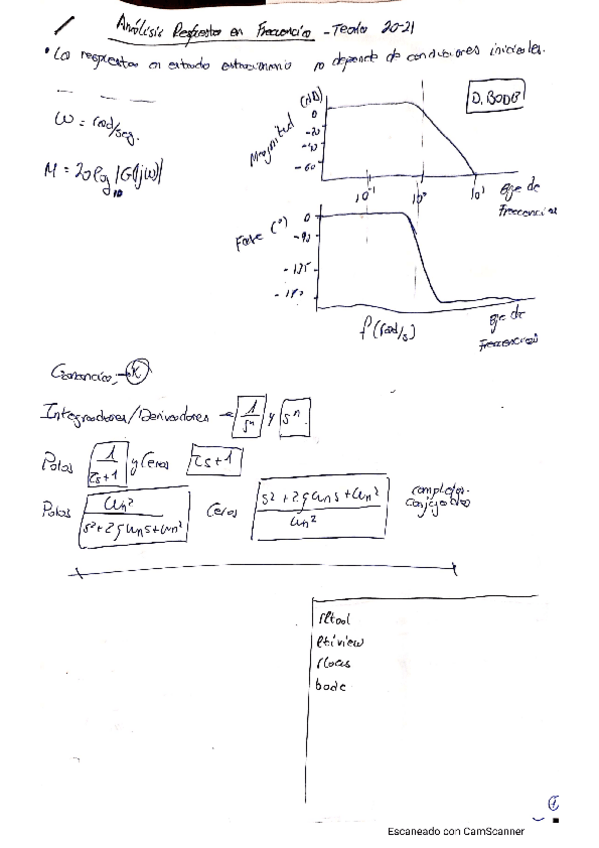 Análisis Respuesta en Frecuencia - Teoría 20-21
• La respuesta en estado estacionario no depende de condiciones iniciales.
ω = rad/seg.
M = 20 log10 |G(jω)|
Magnitud (dB)
0
-20
-40
-60
D. BODE
10⁻¹ 10⁰ 10¹ eje de
Frecuencias
Fase (°)
0
-90
-135
-180
f (rad/s)
eje de
Frecuencias
Ganancia → K
Integradores/Derivadores → 1/sⁿ y sⁿ.
Polos 1/(τs+1) y Ceros τs+1
Polos ωn²/(s²+2ξωns+ωn²) Ceros (s²+2ξωns+ωn²)/ωn² complejos conjugados
rltool
ltiview
rlocus
bode
1
Escaneado con CamScanner